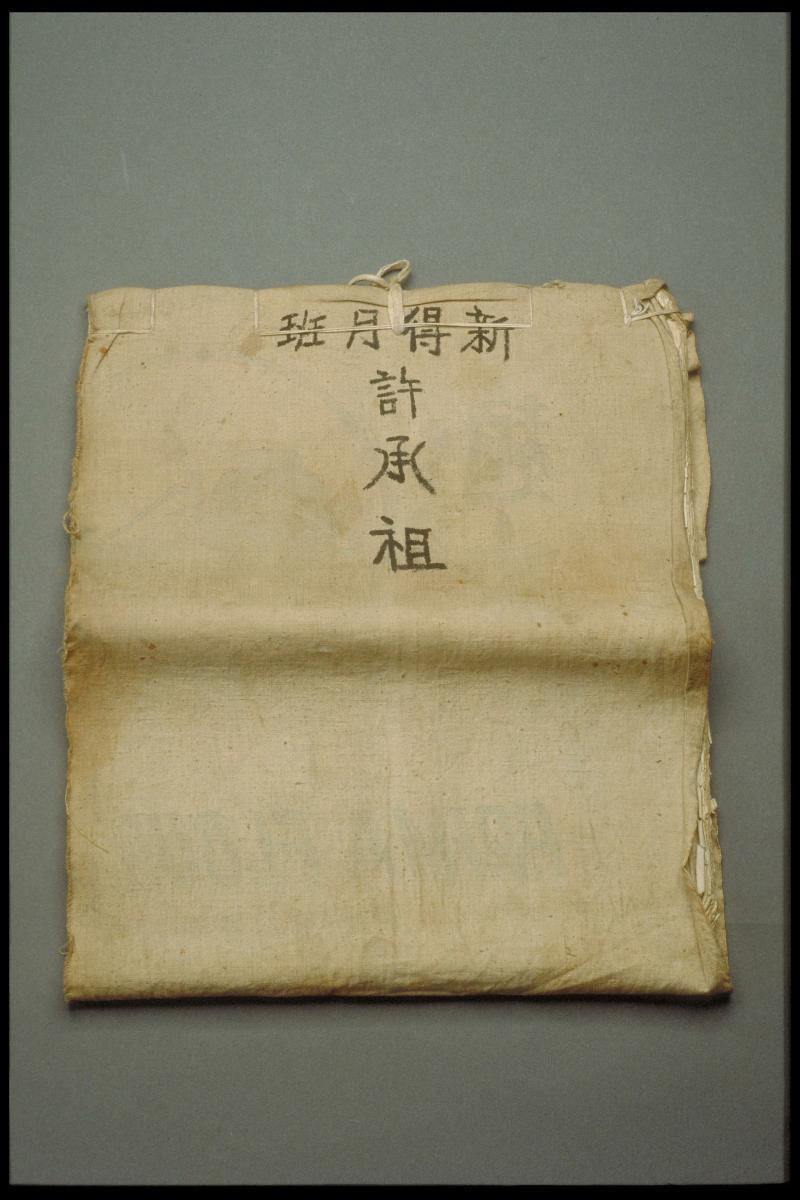 新得月班
許承祖